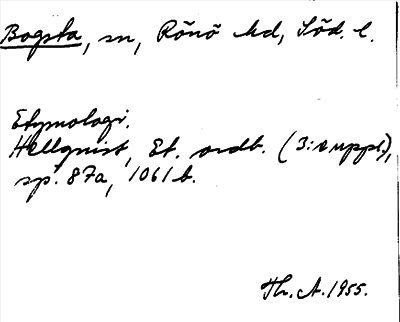 Bogsta, sn, Rönö hd, Söd. l.
Etymologi.
Hellquist, Et. ordb. (3:e uppl.),
sp. 87a, 1061 b.
Th. A. 1955.